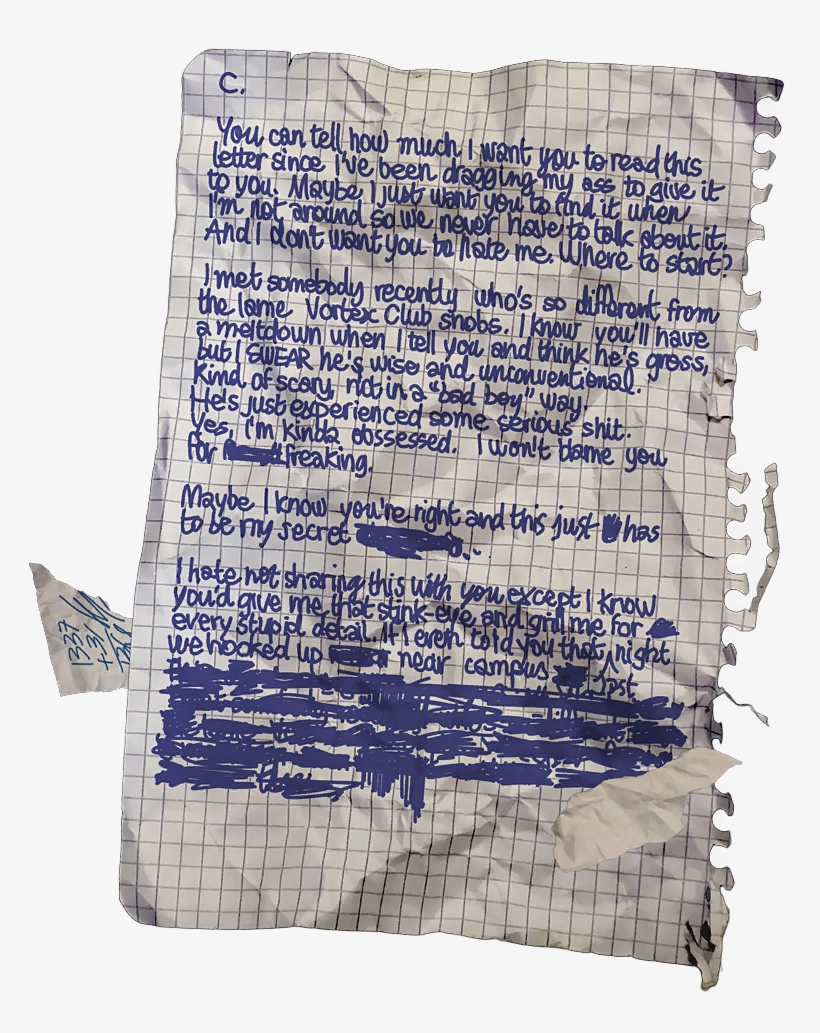 C.
You can tell how much I want you to read this
letter since I've been dragging my ass to give it
to you. Maybe I just want you to find it when
I'm not around so we never have to talk about it.
And I dont want you to hate me. Where to start?
I met somebody recently who's so different from
the lame Vortex Club snobs. I know you'll have
a meltdown when I tell you and think he's gross,
but I SWEAR he's wise and unconventional.
Kind of scary, not in a "bad boy" way.
He's just experienced some serious shit.
Yes, I'm kinda obssessed. I won't blame you
for freaking.
Maybe I know you're right and this just has
to be my secret
I hate not sharing this with you except I know
you'd give me that stink eye and grill me for
every stupid detail. If I even told you that night
we hooked up near campus last